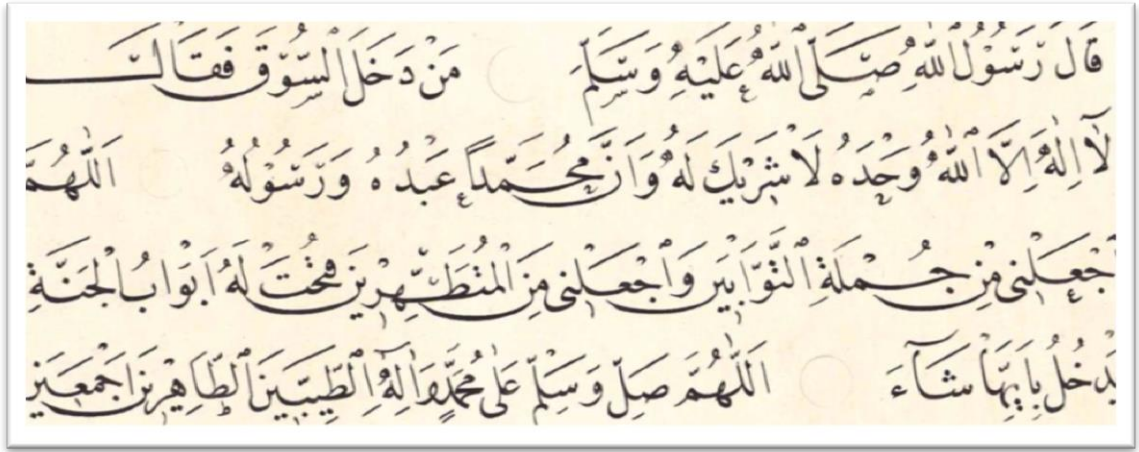 قَالَ رَسُوْلُ اللّٰهِ صَلَّى اللّٰهُ عَلَيْهِ وَسَلَّمَ مَنْ دَخَلَ السُّوْقَ فَقَالَ
لَا اِلٰهَ اِلَّا اللّٰهُ وَحْدَهُ لَا شَرِيْكَ لَهُ وَاَنَّ مُحَمَّدًا عَبْدُهُ وَرَسُوْلُهُ اَللّٰهُمَّ
اجْعَلْنِى مِنْ جُمْلَةِ التَّوَّابِيْنَ وَاجْعَلْنِى مِنَ الْمُتَطَهِّرِيْنَ فُتِحَتْ لَهُ اَبْوَابُ الْجَنَّةِ
يَدْخُلُ بِاَيِّهَا شَآءَ اَللّٰهُمَّ صَلِّ وَسَلِّمْ عَلٰى مُحَمَّدٍ وَاٰلِهِ الطَّيِّبِيْنَ الطَّاهِرِيْنَ اَجْمَعِيْنَ